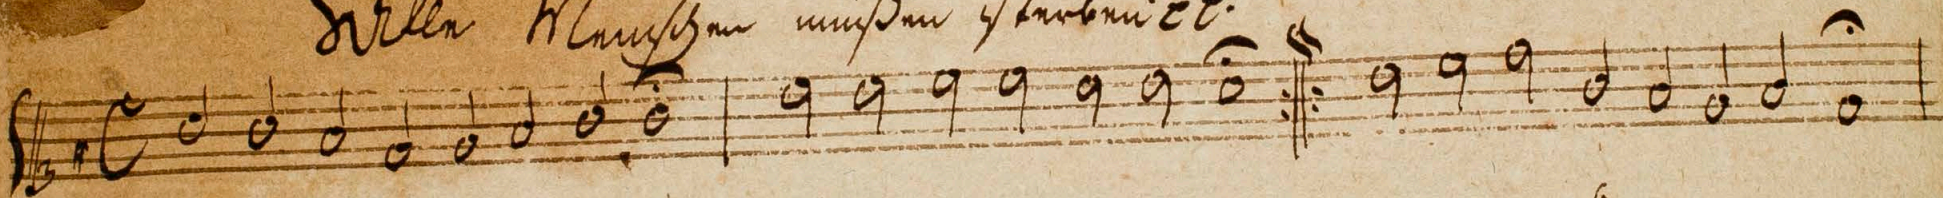 Alle Menschen mußen sterben ꝛꝛ.